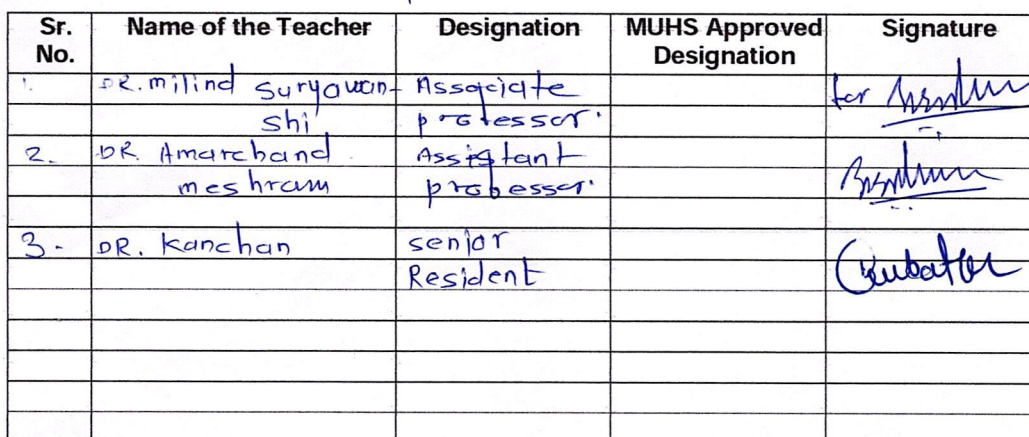 Sr. No. Name of the Teacher Designation MUHS Approved Designation Signature
1. DR. milind Suryawan- Associate for
shi professor.
2. DR. Amarchand Assistant
meshram professor.
3- DR. Kanchan senior
Resident